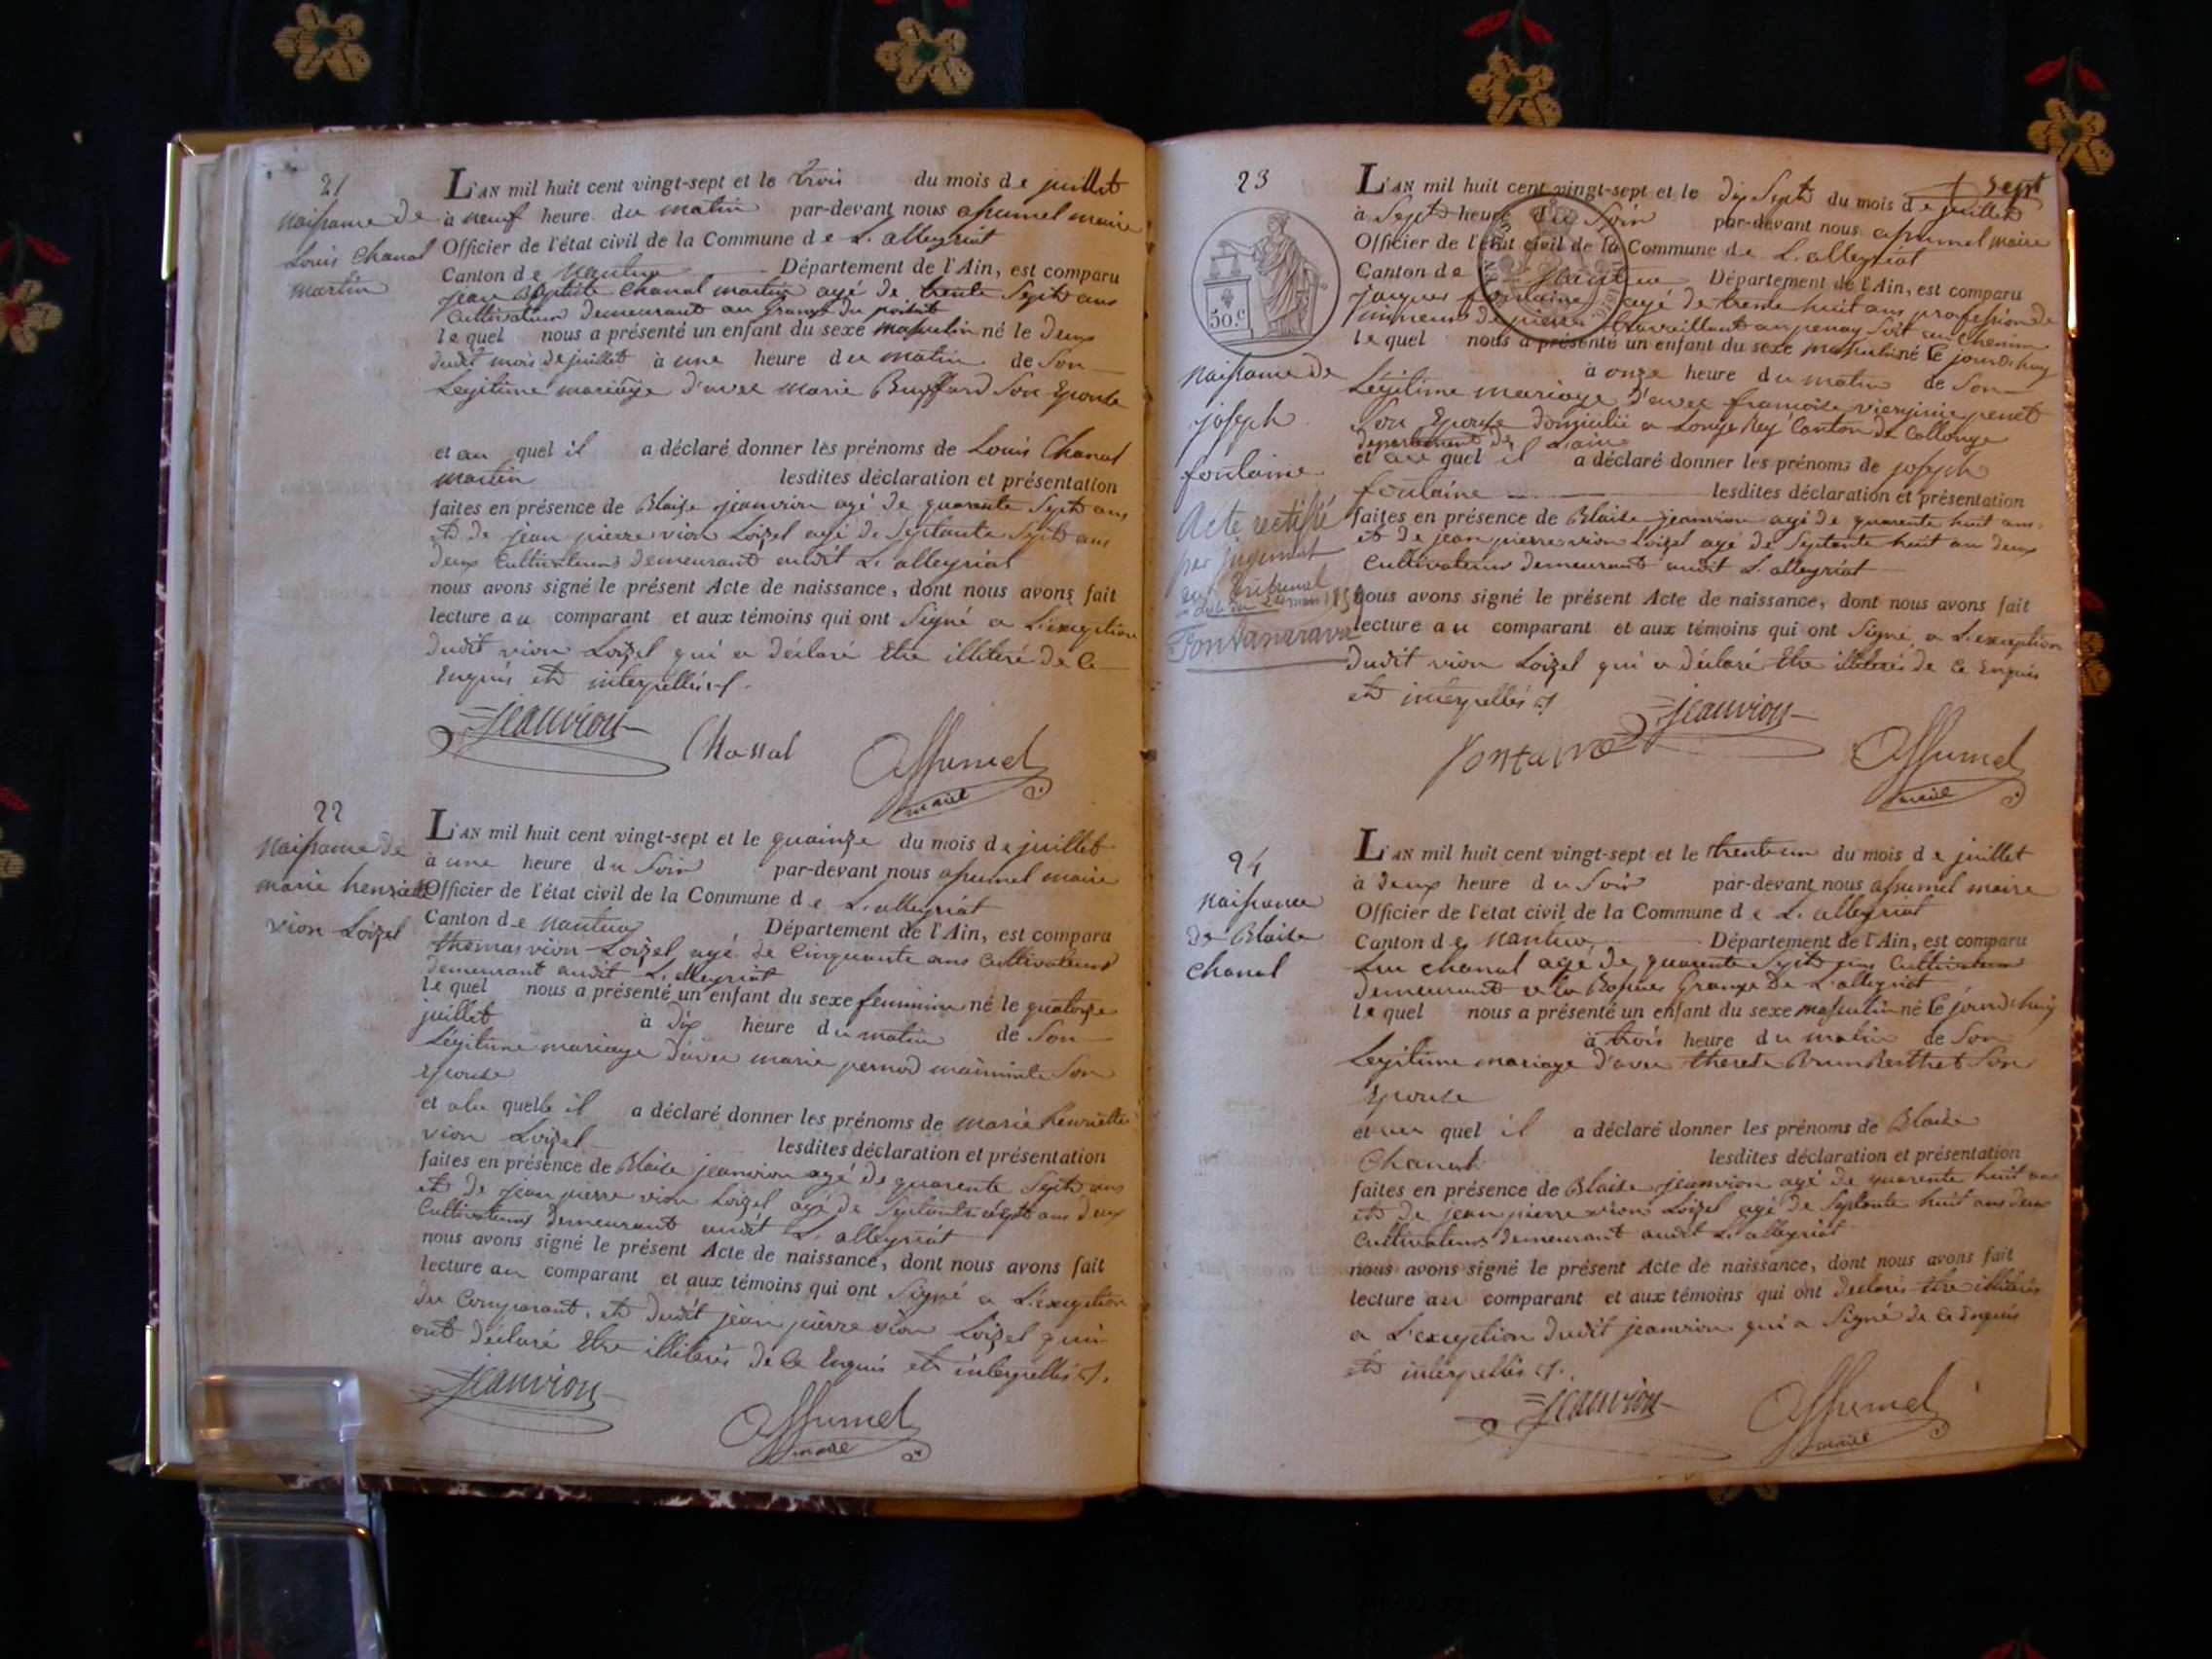 21
naissance de
Louis Chanal
martin
L'AN mil huit cent vingt-sept et le trois du mois de juillet
à neuf heure du matin par-devant nous assumel maire
Officier de l'état civil de la Commune de L. alleyriat
Canton de Nantua Département de l'Ain, est comparu
jean Baptiste Chanal martin agé de trente Sept ans
Cultivateur demeurant au Grange du
le quel nous a présenté un enfant du sexe masculin né le deux
dudit mois de juillet à une heure du matin de Son
Legitime mariage d'avec marie Buffard Son Epouse
et au quel il a déclaré donner les prénoms de Louis Chanal
martin lesdites déclaration et présentation
faites en présence de Blaise jeanvion agé de quarante Sept ans
et de jean pierre vion Loizel agé de Septante Sept ans
deux Cultivateurs demeurant audit L. alleyriat
nous avons signé le présent Acte de naissance, dont nous avons fait
lecture au comparant et aux témoins qui ont Signé a L'exception
dudit vion Loizel qui a déclaré Etre illiteré de Ce
Enquis et interpellés
jeanvion
Chanal
Assumel
maire
22
naissance de
marie henriette
vion Loizel
L'AN mil huit cent vingt-sept et le quainze du mois de juillet
à une heure du Soir par-devant nous assumel maire
Officier de l'état civil de la Commune de L. alleyriat
Canton de Nantua Département de l'Ain, est comparu
thomas vion Loizel agé de Cinquante ans Cultivateur
demeurant audit L. alleyriat
le quel nous a présenté un enfant du sexe feminin né le quatorze
juillet à dix heure du matin de Son
Légitime mariage d'avec marie pernod Son
epouse
et a la quelle il a déclaré donner les prénoms de marie henriette
vion Loizel lesdites déclaration et présentation
faites en présence de Blaise jeanvion agé de quarente Sept ans
et de jean pierre vion Loizel agé de Septante Sept ans deux
Cultivateurs demeurant audit L. alleyriat
nous avons signé le présent Acte de naissance, dont nous avons fait
lecture au comparant et aux témoins qui ont Signé a L'exception
du Comparant, et dudit jean pierre vion Loizel qui
ont déclaré Etre illiterés de Ce Enquis et interpellés
jeanvion
Assumel
maire
sept
23
50.c
naissance de
joseph
fontaine
Acte rectifié
par jugement
du tribunal
Fontanarava
L'AN mil huit cent vingt-sept et le dix Sept du mois de juillet
à Sept heure du Soir par-devant nous assumel maire
Officier de l'état civil de la Commune de L. alleyriat
Canton de Nantua Département de l'Ain, est comparu
jacques fontaine agé de trente huit ans profession de
mineur de pierre travaillant au Soit au Chemin
le quel nous a présenté un enfant du sexe masculin né le jourd'huy
à onze heure du matin de Son
Légitime mariage d'avec francoise vierginie penet
Son Epouse domicilié a Longe Rey Canton de Collonge
departement de L'ain
et au quel il a déclaré donner les prénoms de joseph
fontaine lesdites déclaration et présentation
faites en présence de Blaise jeanvion agé de quarente huit ans
et de jean pierre vion Loizel agé de Septente huit an deux
Cultivateur demeurant audit L. alleyriat
nous avons signé le présent Acte de naissance, dont nous avons fait
lecture au comparant et aux témoins qui ont Signé a L'exception
dudit vion Loizel qui a déclaré Etre illiterés de Ce Enquis
et interpellés
fontaine
jeanvion
Assumel
maire
24
naissance
de Blaise
Chanal
L'AN mil huit cent vingt-sept et le trente un du mois de juillet
à deux heure du Soir par-devant nous assumel maire
Officier de l'état civil de la Commune de L. alleyriat
Canton de Nantua Département de l'Ain, est comparu
Luc chanal agé de quarente Sept ans Cultivateur
demeurant a la Grange de L. alleyriat
le quel nous a présenté un enfant du sexe masculin né le jourd'huy
à trois heure du matin de Son
Legitime mariage d'avec therese Brun Berthet Son
Epouse
et au quel il a déclaré donner les prénoms de Blaise
Chanal lesdites déclaration et présentation
faites en présence de Blaise jeanvion agé de quarente huit an
et de jean pierre vion Loizel agé de Septante huit ans deux
Cultivateurs demeurant audit L. alleyriat
nous avons signé le présent Acte de naissance, dont nous avons fait
lecture au comparant et aux témoins qui ont declarés Etre illiterés
a L'exception dudit jeanvion qui a Signé de Ce Enquis
et interpellés
jeanvion
Assumel
maire